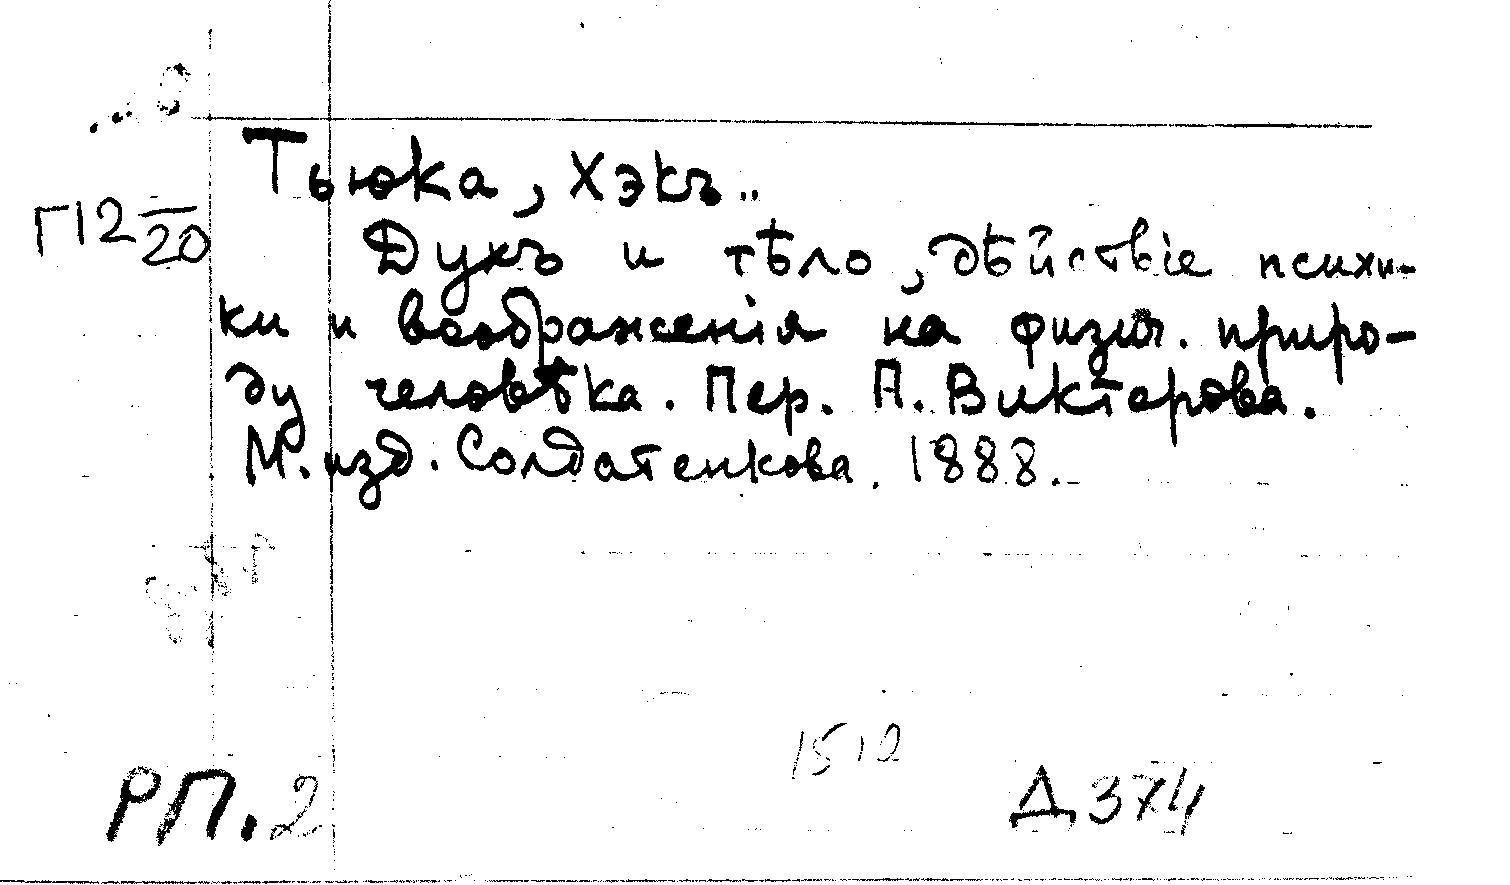 Тьюка, Хэкъ..
Г12 20
Духъ и тѣло, дѣйствіе психи-
ки и воображенія на физич. приро-
ду человѣка. Пер. П. Викторова.
М. изд. Солдатенкова. 1888.
1512
РП.2
Д374